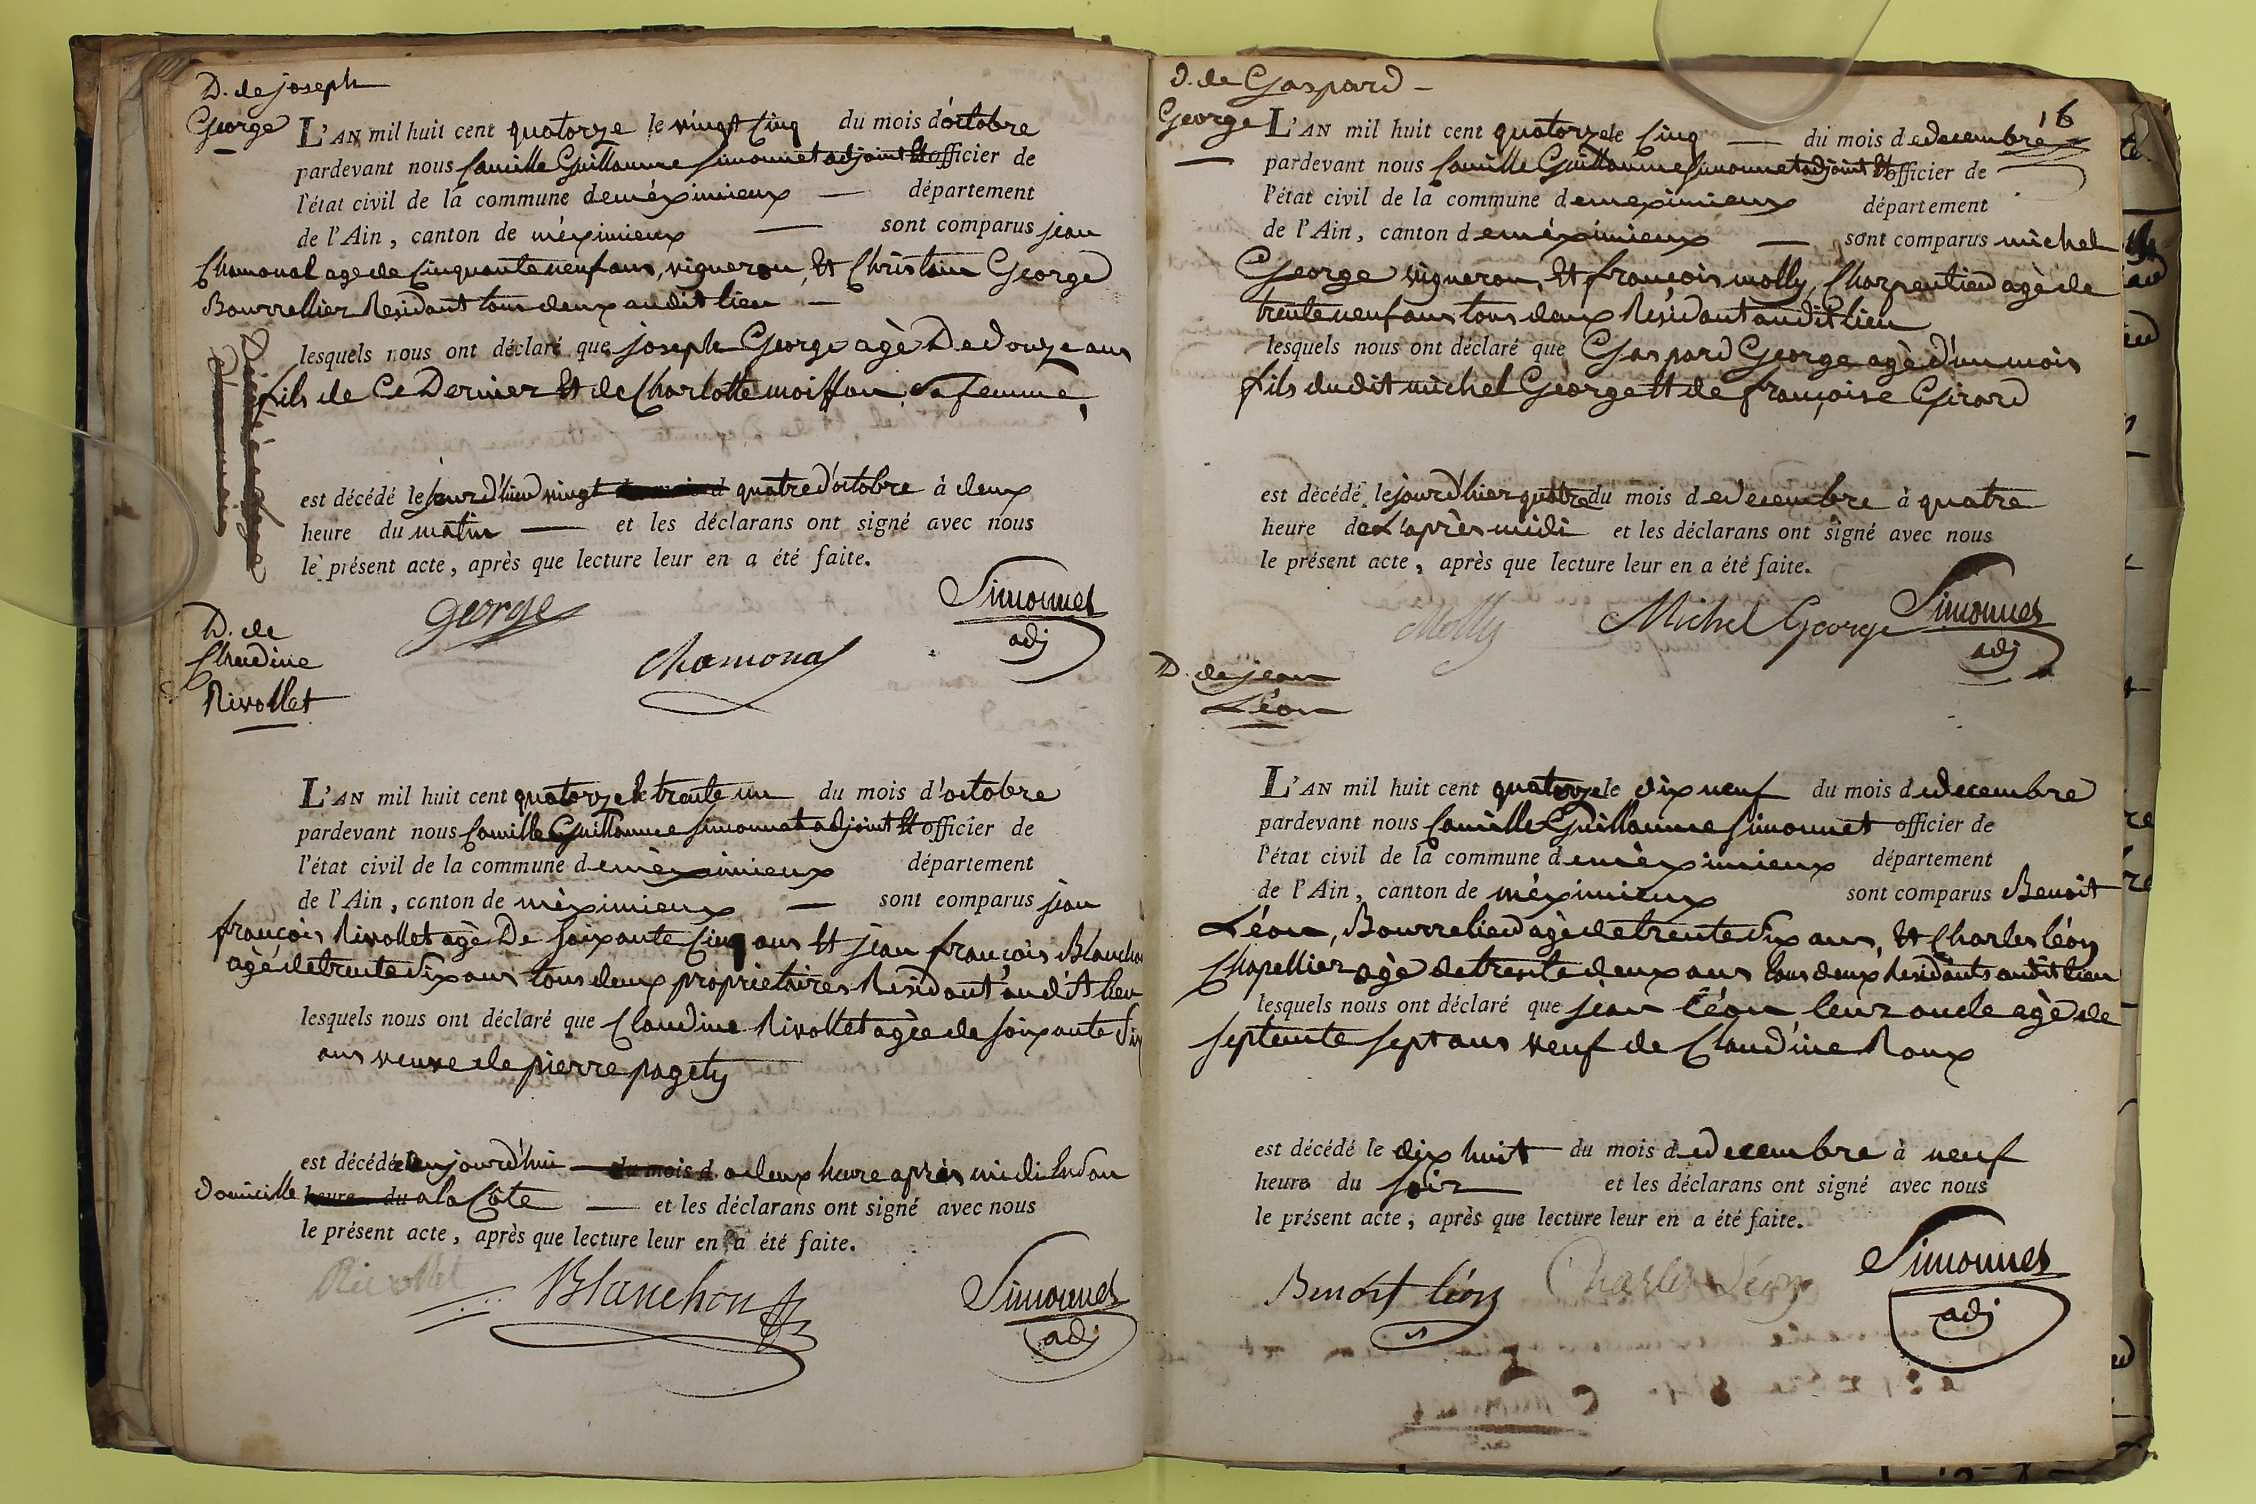 D. de joseph
George
L'AN mil huit cent quatorze le vingt cinq du mois d'octobre
pardevant nous Camille Guillaume Simonnet adjoint Et officier de
l'état civil de la commune de méximieux — département
de l'Ain, canton de méximieux — sont comparus jean
Chamonal agè de Cinquante neuf ans, vigneron, Et Christin George
Bourrellier Residant tous deux audit lieu —
lesquels nous ont déclaré que joseph George agè De Douze ans
fils de Ce Dernier Et de Charlotte moiffon, Sa femme,
est décédé le jourd'hier vingt du mois d quatre d'octobre à deux
heure du matin — et les déclarans ont signé avec nous
le présent acte, après que lecture leur en a été faite.
george
Simonnet
adj
Chamonal
D. de
Claudine
Rivollet
L'AN mil huit cent quatorze le trente un du mois d'octobre
pardevant nous Camille Guillaume Simonnat adjoint Et officier de
l'état civil de la commune de méximieux département
de l'Ain, canton de méximieux — sont comparus jean
françois Rivollet agè De Soixante Cinq ans Et jean françois Blancho
agé de trente Six ans tous deux proprietaires Residant audit lieu
lesquels nous ont déclaré que Claudine Rivollet agèe de Soixante Six
ans veuve de pierre pagety
est décédée aujourd'hui du mois d a deux heure après midi En Son
Domicille heure du a la Côte — et les déclarans ont signé avec nous
le présent acte, après que lecture leur en a été faite.
Rivollet
Blanchon
Simonnet
adj
D. de Gaspard —
George
6
L'AN mil huit cent quatorze le Cinq — du mois de decembre
pardevant nous Camille Guillaume Simonnet adjoint Et officier de
l'état civil de la commune de meximieux département
de l'Ain, canton de méximieux — sont comparus michel
George vigneron, Et françois molly, Charpentier agè de
trente neuf ans tous deux Résidant audit lieu
lesquels nous ont déclaré que Gaspard George agè d'un mois
fils dudit michel George Et de françoise Girard
est décédé le jourd'hier quatre du mois de decembre à quatre
heure de L'après midi et les déclarans ont signé avec nous
le présent acte, après que lecture leur en a été faite.
Molly
Michel George
Simonnet
adj
D. de jean
Léon
L'AN mil huit cent quatorze le dix neuf du mois de decembre
pardevant nous Camille Guillaume Simonnet officier de
l'état civil de la commune de méximieux département
de l'Ain, canton de méximieux sont comparus Benoit
Léon, Bourrelier agè de trente Six ans, Et Charles léon
Chapellier agè de trente deux ans tous deux Residants audit lieu
lesquels nous ont déclaré que jean Léon leur oncle agè de
septente sept ans veuf de Claudine Roux
est décédé le dix huit du mois de decembre à neuf
heure du Soir et les déclarans ont signé avec nous
le présent acte, après que lecture leur en a été faite.
Benoit léon
Charles Léon
Simonnet
adj